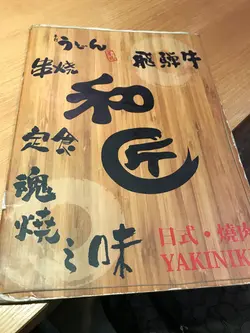 うどん
飛騨牛
串烧
和匠
定食
魂燒之味
日式·燒肉
YAKINIK